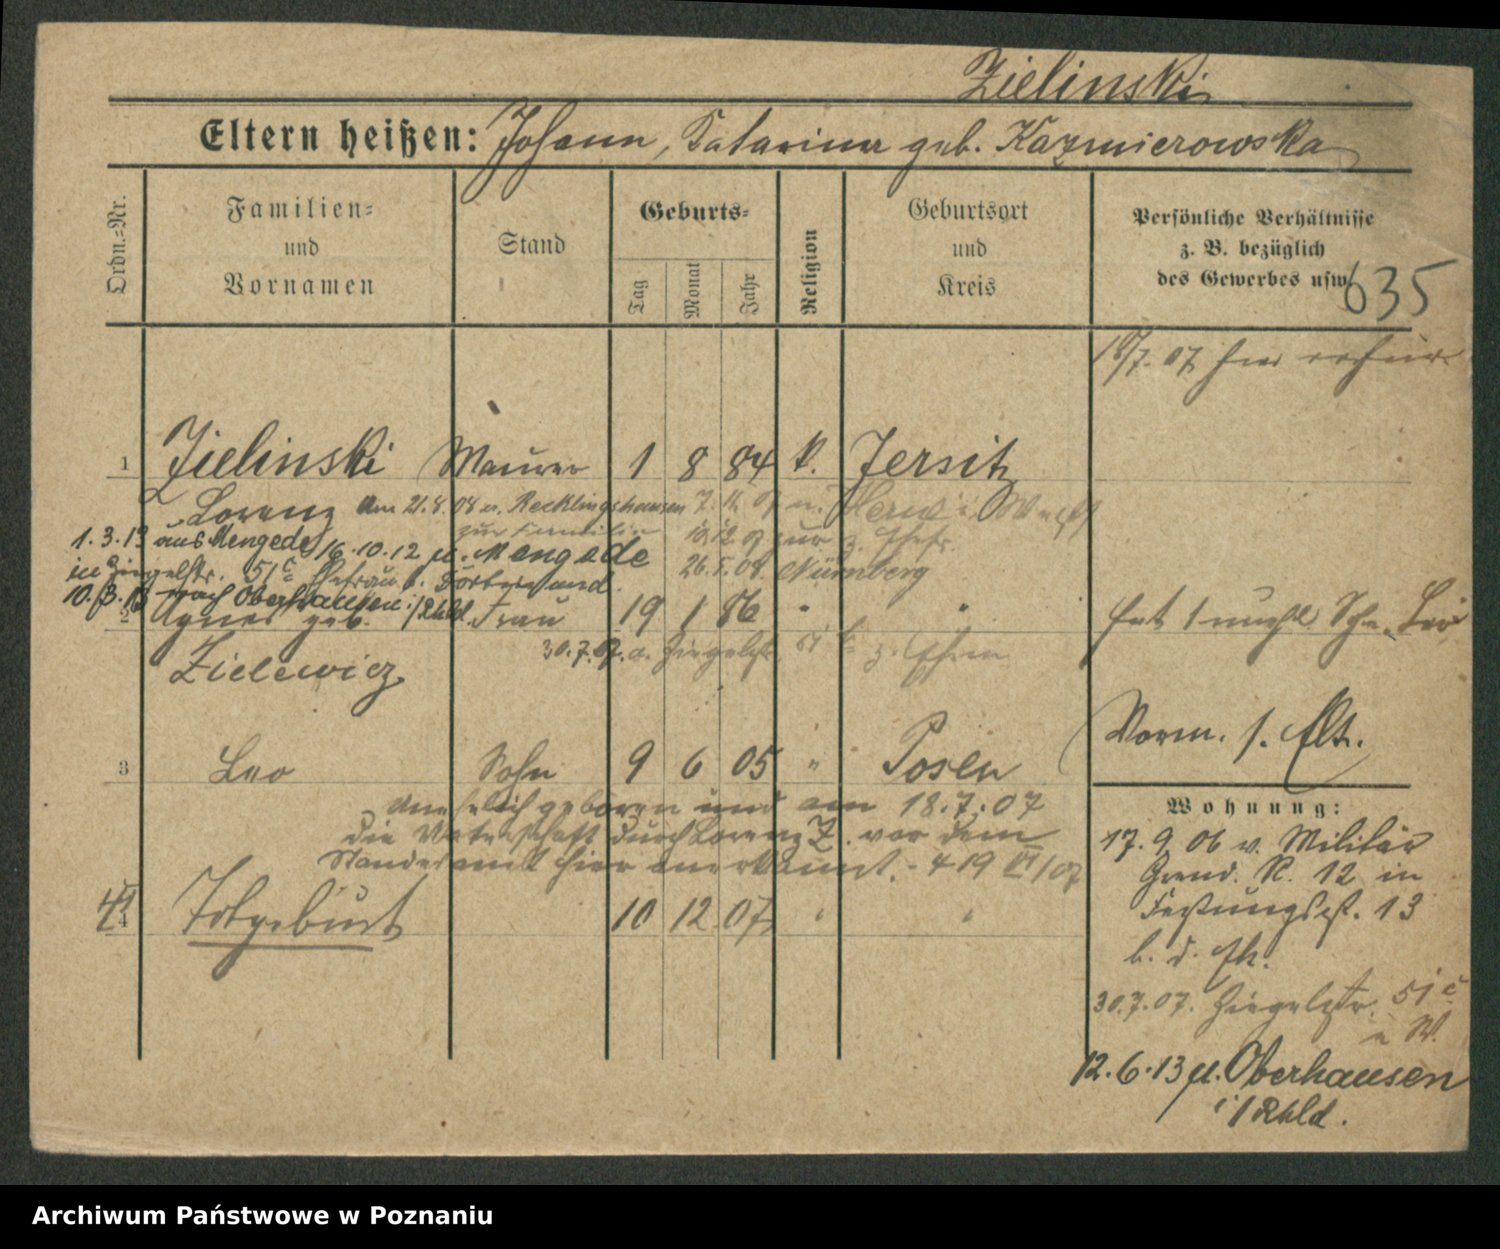 Zielinski
Eltern heißen: Johann, Katarina geb. Kaźmierowska
Ordn.=Nr.
Familien=
und
Vornamen
Stand
Geburts=
Tag
Monat
Jahr
Religion
Geburtsort
und
Kreis
Persönliche Verhältnisse
z. B. bezüglich
des Gewerbes usw.
635
18/7. 07 hier
1 Zielinski Maurer 1 8 84 k. Jersitz
Lorenz am 21.8.08 n. Recklingshausen 7. 11. 07 n. Herne i. Westf
zur Familie 10.12.07 zur z. Ehefr.
1.3.13 aus Mengede 16.10.12 n. Mengede 26.5.08. Nürnberg
in Ziegelstr. 51c Ehefrau b.
10.3.13 nach Oberhausen i/Rhld.
2 Agnes geb. Frau 19 1 86 " "
Zielewicz
30.7.07. a. Ziegelstr. 51 c z. Ehem
hat 1 unehl. Sohn Leo
3 Leo Sohn 9 6 05 " Posen
Vorm. s. Akt.
unehelich geboren und am 18.7.07
die Vaterschaft durch Lorenz Z. vor dem
Standesamt hier anerkannt. - 419 VI/07
4 Totgeburt 10 12 07 " "
Wohnung:
17.9 06 v. Militär
Grend. R. 12 in
Festungsst. 13
b. d. Elt.
30.7.07. Ziegelstr. 51 c
n W.
12.6.13 n. Oberhausen
i/Rhld.
Archiwum Państwowe w Poznaniu